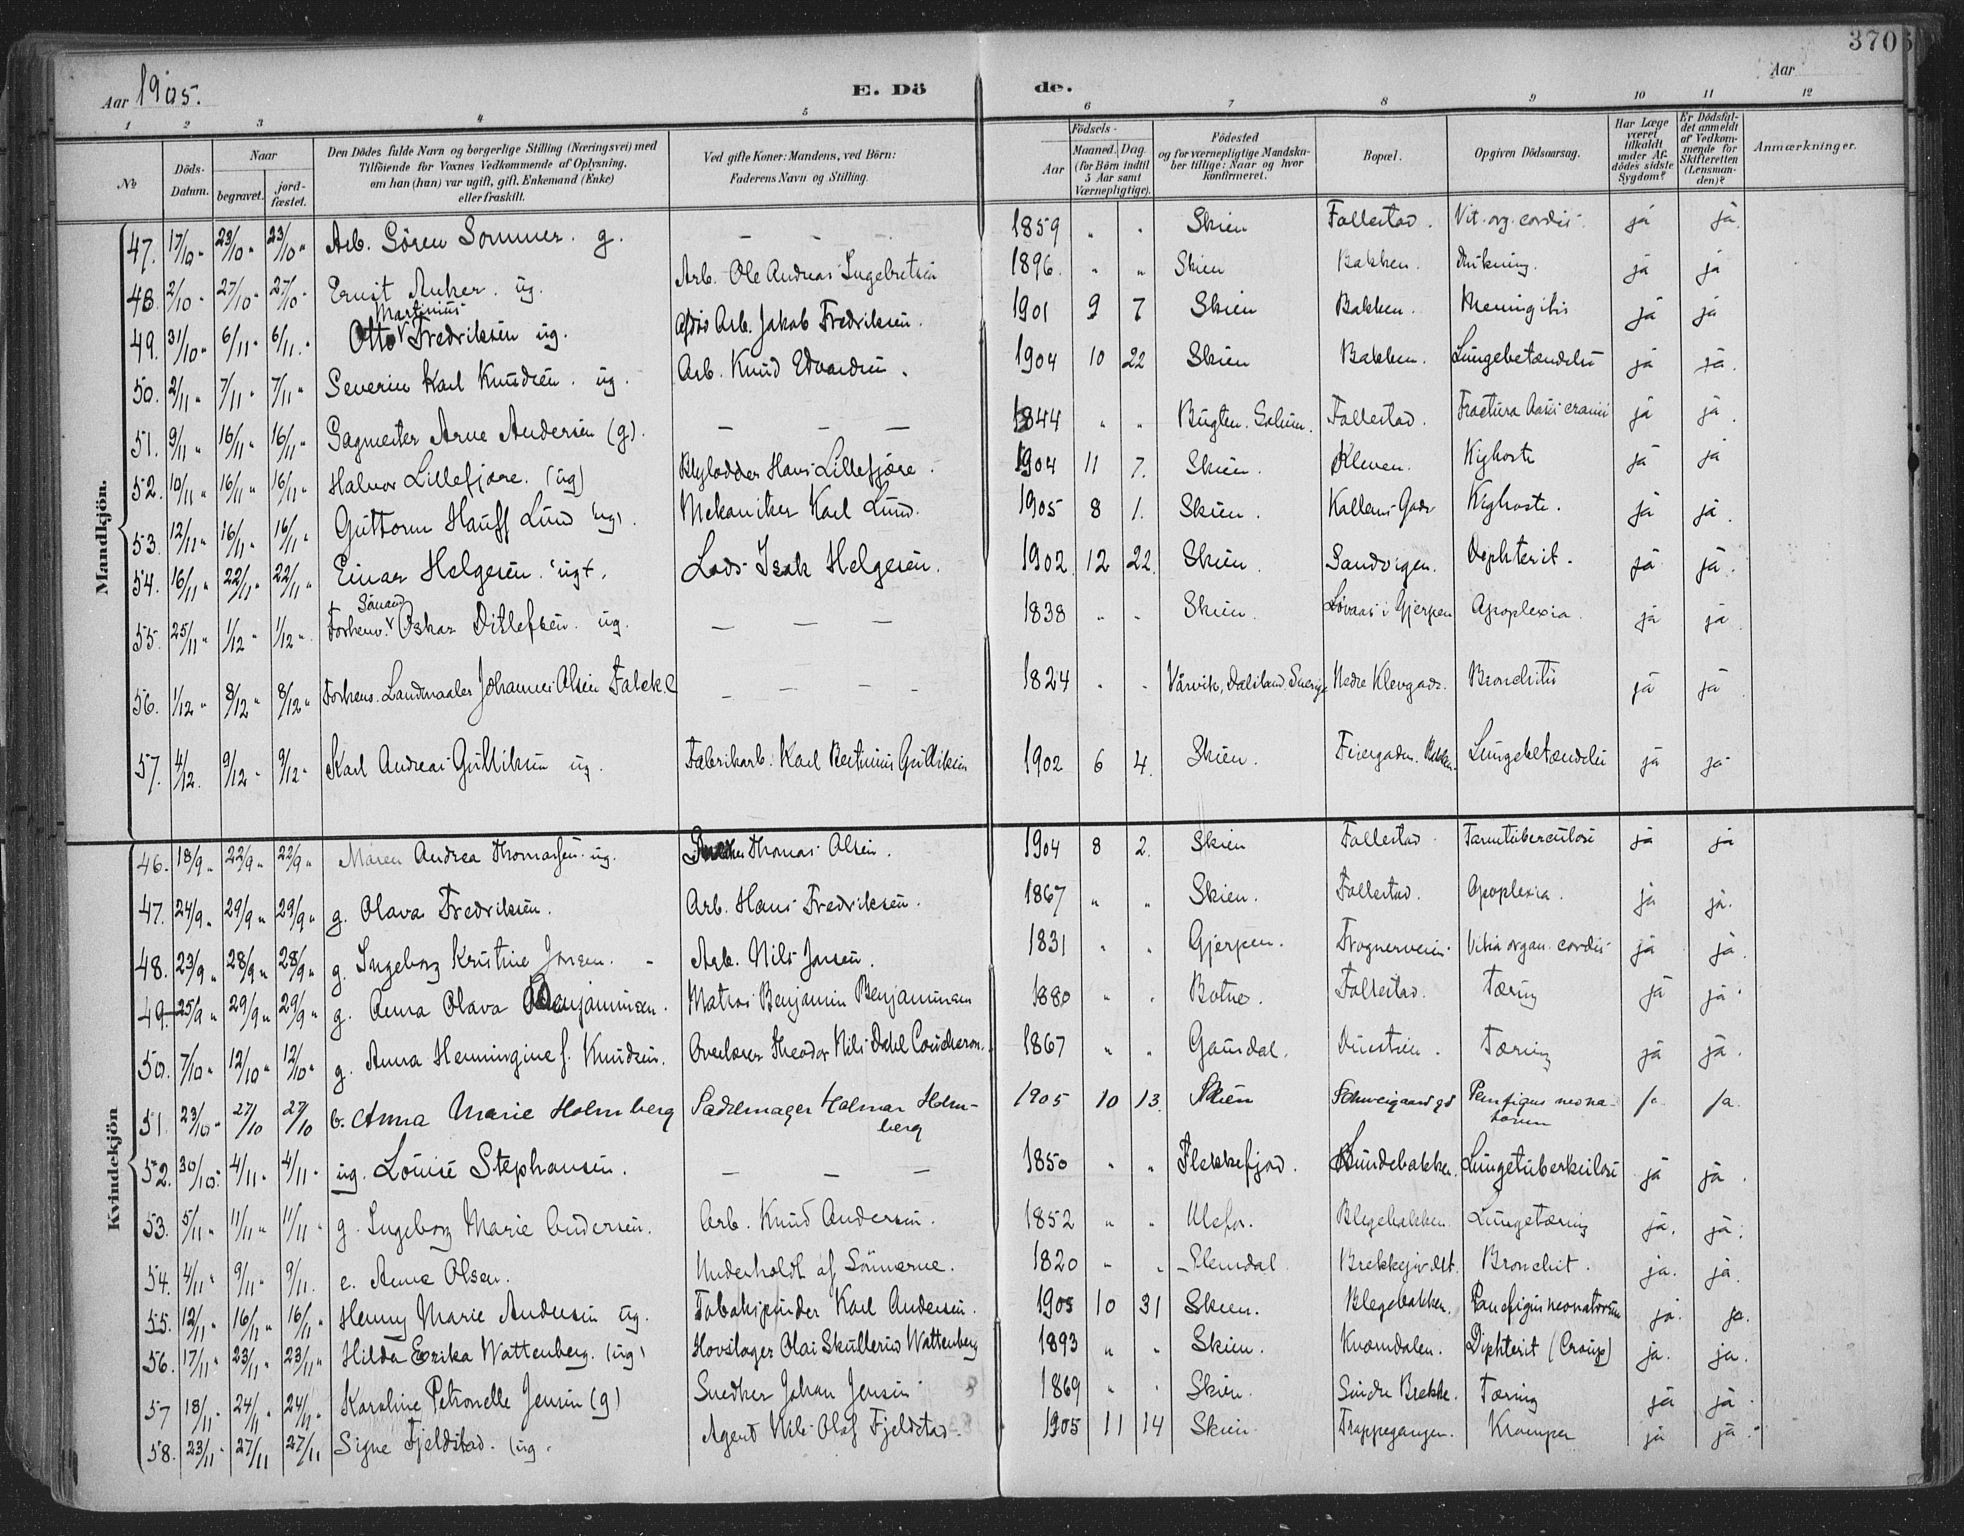 370
Aar 1905.
E. Döde.
Aar
1 2 3 4 5 6 7 8 9 10 11 12
№
Döds-Datum.
Naar begravet. jordfæstet.
Den Dödes fulde Navn og borgerlige Stilling (Næringsvei) med Tilföiende for Voxnes Vedkommende af Oplysning, om han (hun) var ugift, gift, Enkemand (Enke) eller fraskilt.
Ved gifte Koner: Mandens, ved Börn: Faderens Navn og Stilling.
Födsels- Aar Maaned. Dag. (for Börn indtil 5 Aar samt Værnepligtige).
Födested og for værnepligtige Mandskaber tillige: Naar og hvor konfirmeret.
Bopæl.
Opgiven Dödsaarsag.
Har Læge været tilkaldt under Afdödes sidste Sygdom?
Er Dödsfaldet anmeldt af Vedkommende for Skifteretten (Lensmanden)?
Anmærkninger.
Mandkjön.
47. 17/10 " 23/10 " 23/10 " Arb. Sören Sommer. g. — — — 1859 " " Skien Follestad. Vit. org. cordis. ja ja.
48. 2/10 " 27/10 " 27/10 " Ernst Anker. ug. Arb. Ole Andreas Ingebretsen 1896. " " Skien Bakken. Drukning. ja ja
49. 31/10 " 6/11 " 6/11 " Otto Martinius Fredriksen ug. Arb. Jakob Fredriksen. 1901 9 7 Skien Bakken. Meningitis ja ja
50. 2/11 " 7/11 " 7/11 " Severin Karl Knudsen. ug. Arb. Knud Edvardsen. 1904 10 22 Skien Bakken. Lungebetændelse ja ja.
51. 9/11 " 16/11 " 16/11 " Sagmester Arne Andersen (g). — — — 1844 " " Bugten. Solum. Follestad. Fractura basis cranii ja ja.
52. 10/11 " 16/11 " 16/11 " Halvor Lillefjære. (ug) Hans Lillefjære. 1904 11 7. Skien. Kleven. Kighoste ja ja
53. 12/11 " 16/11 " 16/11 " Guttorm Hauff Lund (ug). Mekaniker Karl Lund. 1905 8 1. Skien. Kighoste. ja ja.
54. 16/11 " 22/11 " 22/11 " Einar Helgesen. ugt. Lods Isak Helgesen. 1902. 12 22. Skien. Sandvigen. Diphterit. ja ja.
55. 25/11 " 1/12 " 1/12 " Forhenv. Sömand Oskar Ditlefsen. ug. — — — 1838 " " Skien. Lövaas i Gjerpen Apoplexia. ja ja.
56. 1/12 " 8/12 " 8/12 " Forhenv. Landmaaler Johannes Olsen Falck e — — — 1824 " " Vårvik, Dalsland, Sverige Nedre Klevgade. Bronchitis ja ja.
57. 4/12. 9/12 " 9/12 " Karl Andreas Gulliksen ug. Fabrikarb. Karl Bertinius Gulliksen 1902 6 4. Skien. Feiergaden. Bakken. Lungebetændelse ja ja
Kvindekjön
46. 18/9 " 22/9 " 22/9 " Maren Andrea Thomassen. ug. Thomas Olsen. 1904 8 2. Skien Follestad Tarmtuberculose ja ja
47. 24/9 " 29/9 " 29/9 " g. Olava Fredriksen. Arb. Hans Fredriksen. 1867 " " Skien. Follestad. Apoplexia. ja ja.
48. 23/9 " 28/9 " 28/9 " g. Ingeborg Kristine Jensen. Arb. Nils Jensen. 1831 " " Gjerpen. Frognerveien Vitia organ. cordis ja ja.
49. 25/9 " 29/9 " 29/9 " g. Anna Olava Benjaminsen. Matros Benjamin Benjaminsen 1880 " " Botne. Follestad. Tæring ja ja.
50. 7/10 " 12/10 " 12/10 " g. Anna Henningine f. Knudsen. Overlærer Theodor Nils Dahl Coucheron. 1867 " " Gausdal. Duestien. Tæring ja ja.
51. 23/10 " 27/10 27/10 b. Anna Marie Holmberg Sadelmager Halmar Holmberg 1905 10 13. Skien Schweigaardsgd Pemfigus neonatorum ja ja.
52. 30/10. 4/11 " 4/11 " ug. Louise Stephansen. — — — 1850 " " Flekkefjord. Lundebakken. Lungetuberkulose ja ja.
53. 5/11 " 11/11 " 11/11 " g. Ingeborg Marie Andersen. Arb. Knud Andersen. 1852 " " Ulefos. Blegebakken. Lungetæring ja. ja.
54. 4/11 " 9/11 " 9/11. e. Anne Olsen. Underholdt af Sönnerne. 1820 " " Slemdal. Bronchit. ja. ja.
55. 12/11 " 16/11 " 16/11 " Henny Marie Andersen ug. Tobakspinder Karl Andersen. 1905 10 31 Skien. Blegebakken. Pemfigus neonatorum ja. ja.
56. 17/11 " 23/11 " 23/11 " Hilda Erika Wattenberg. (ug) Hovslager Olai Skullerud Wattenberg 1893 " " Skien. Kvomdalen. Diphterit (Croup) ja. ja.
57 18/11 " 24/11 " 24/11 " Karoline Petronelle Jensen (g) Snedker Johan Jensen 1869 " " Skien. Söndre Brekke. Tæring ja ja.
58. 23/11 " 27/11 27/11 Signe Fjeldstad. (ug. Agent Nils Olaf Fjeldstad 1905 11 14 Skien. Trappegangen. Kramper ja ja.